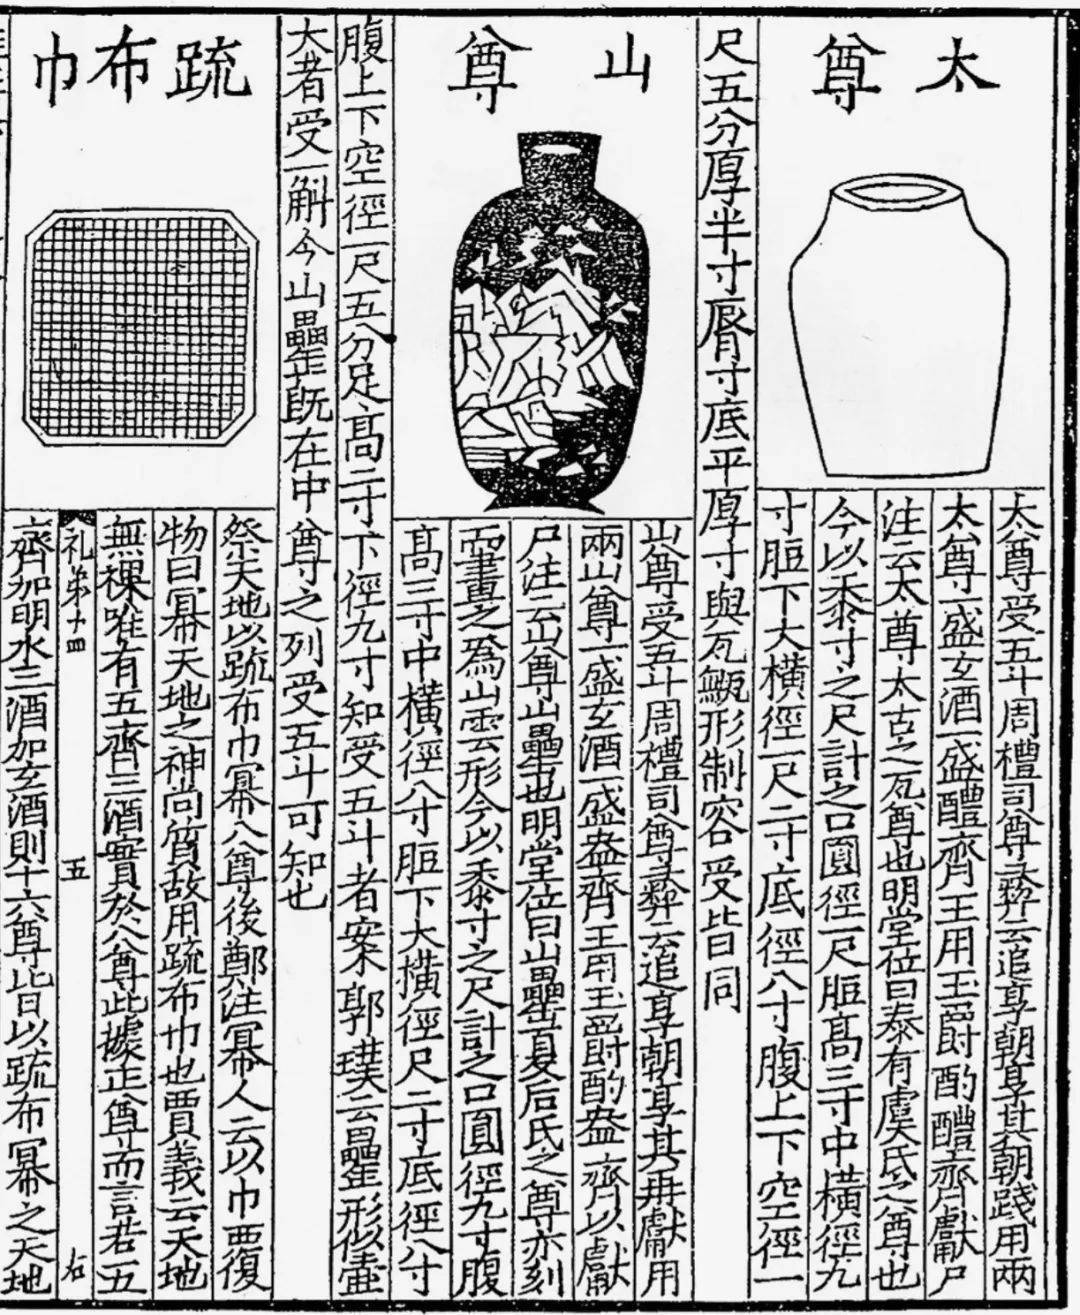 太尊
太尊受五斗周禮司尊彝云追享朝享其朝踐用兩
太尊一盛玄酒一盛醴齊王用玉爵酌醴齊獻尸
注云太尊太古之瓦尊也明堂位曰泰有虞氏之尊也
今以黍寸之尺計之口圓徑一尺脰高三寸中橫徑九
寸脰下大橫徑一尺二寸底徑八寸腹上下空徑一
尺五分厚半寸脣寸底平厚寸與瓦甒形制容受皆同
山尊
山尊受五斗周禮司尊彝云追享朝享其再獻用
兩山尊一盛玄酒一盛盎齊王用玉爵酌盎齊以獻
尸注云山尊山罍也明堂位曰山罍夏后氏之尊亦刻
而畫之爲山雲形今以黍寸之尺計之口圓徑九寸腹
高三寸中橫徑八寸脰下大橫徑尺二寸底徑八寸
腹上下空徑一尺五分足高二寸下徑九寸知受五斗者案郭璞云罍形似壷
大者受一斛今山罍既在中尊之列受五斗可知也
䟽布巾
祭天地以䟽布巾冪八尊後鄭注冪人云以巾覆
物曰冪天地之神尚質故用䟽布巾也賈義云天地
無祼唯有五齊三酒實於八尊此據正尊而言若五
礼弟十四 五 右
齊加明水三酒加玄酒則十六尊皆以䟽布冪之天地